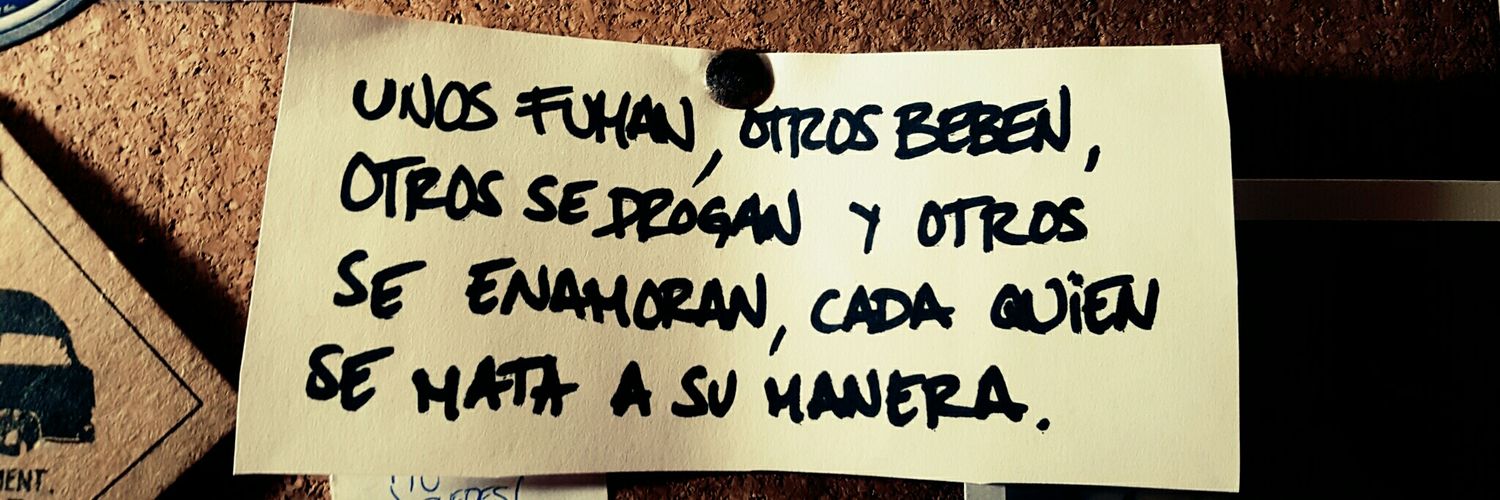 UNOS FUMAN, OTROS BEBEN,
OTROS SE DROGAN Y OTROS
SE ENAMORAN, CADA QUIEN
SE MATA A SU MANERA.